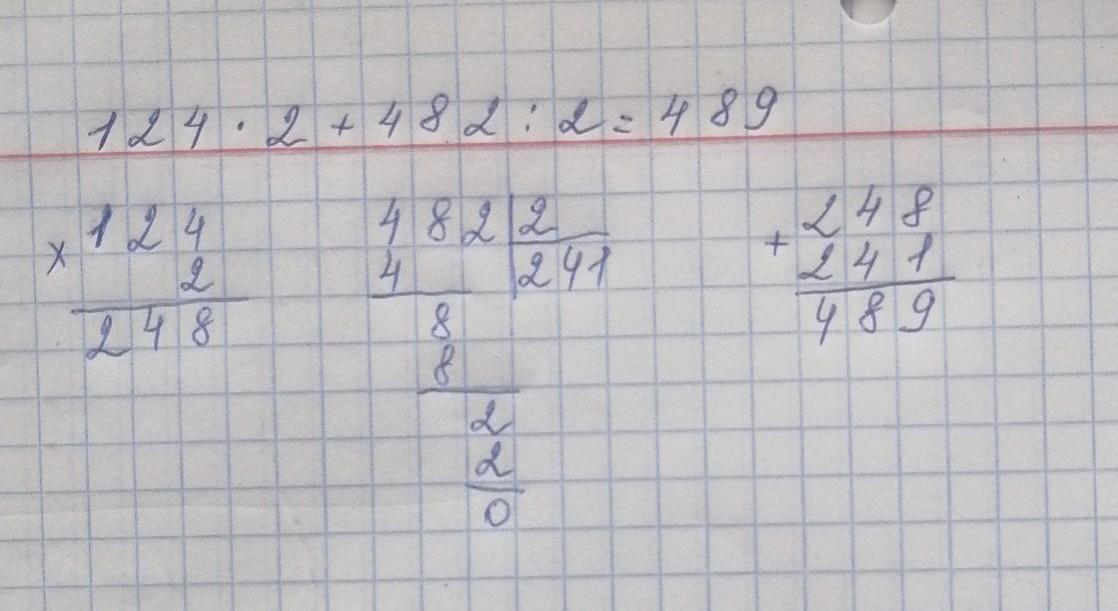 124 · 2 + 482 : 2 = 489
× 124
2
248
482 | 2
4 | 241
8
8
2
2
0
+ 248
241
489